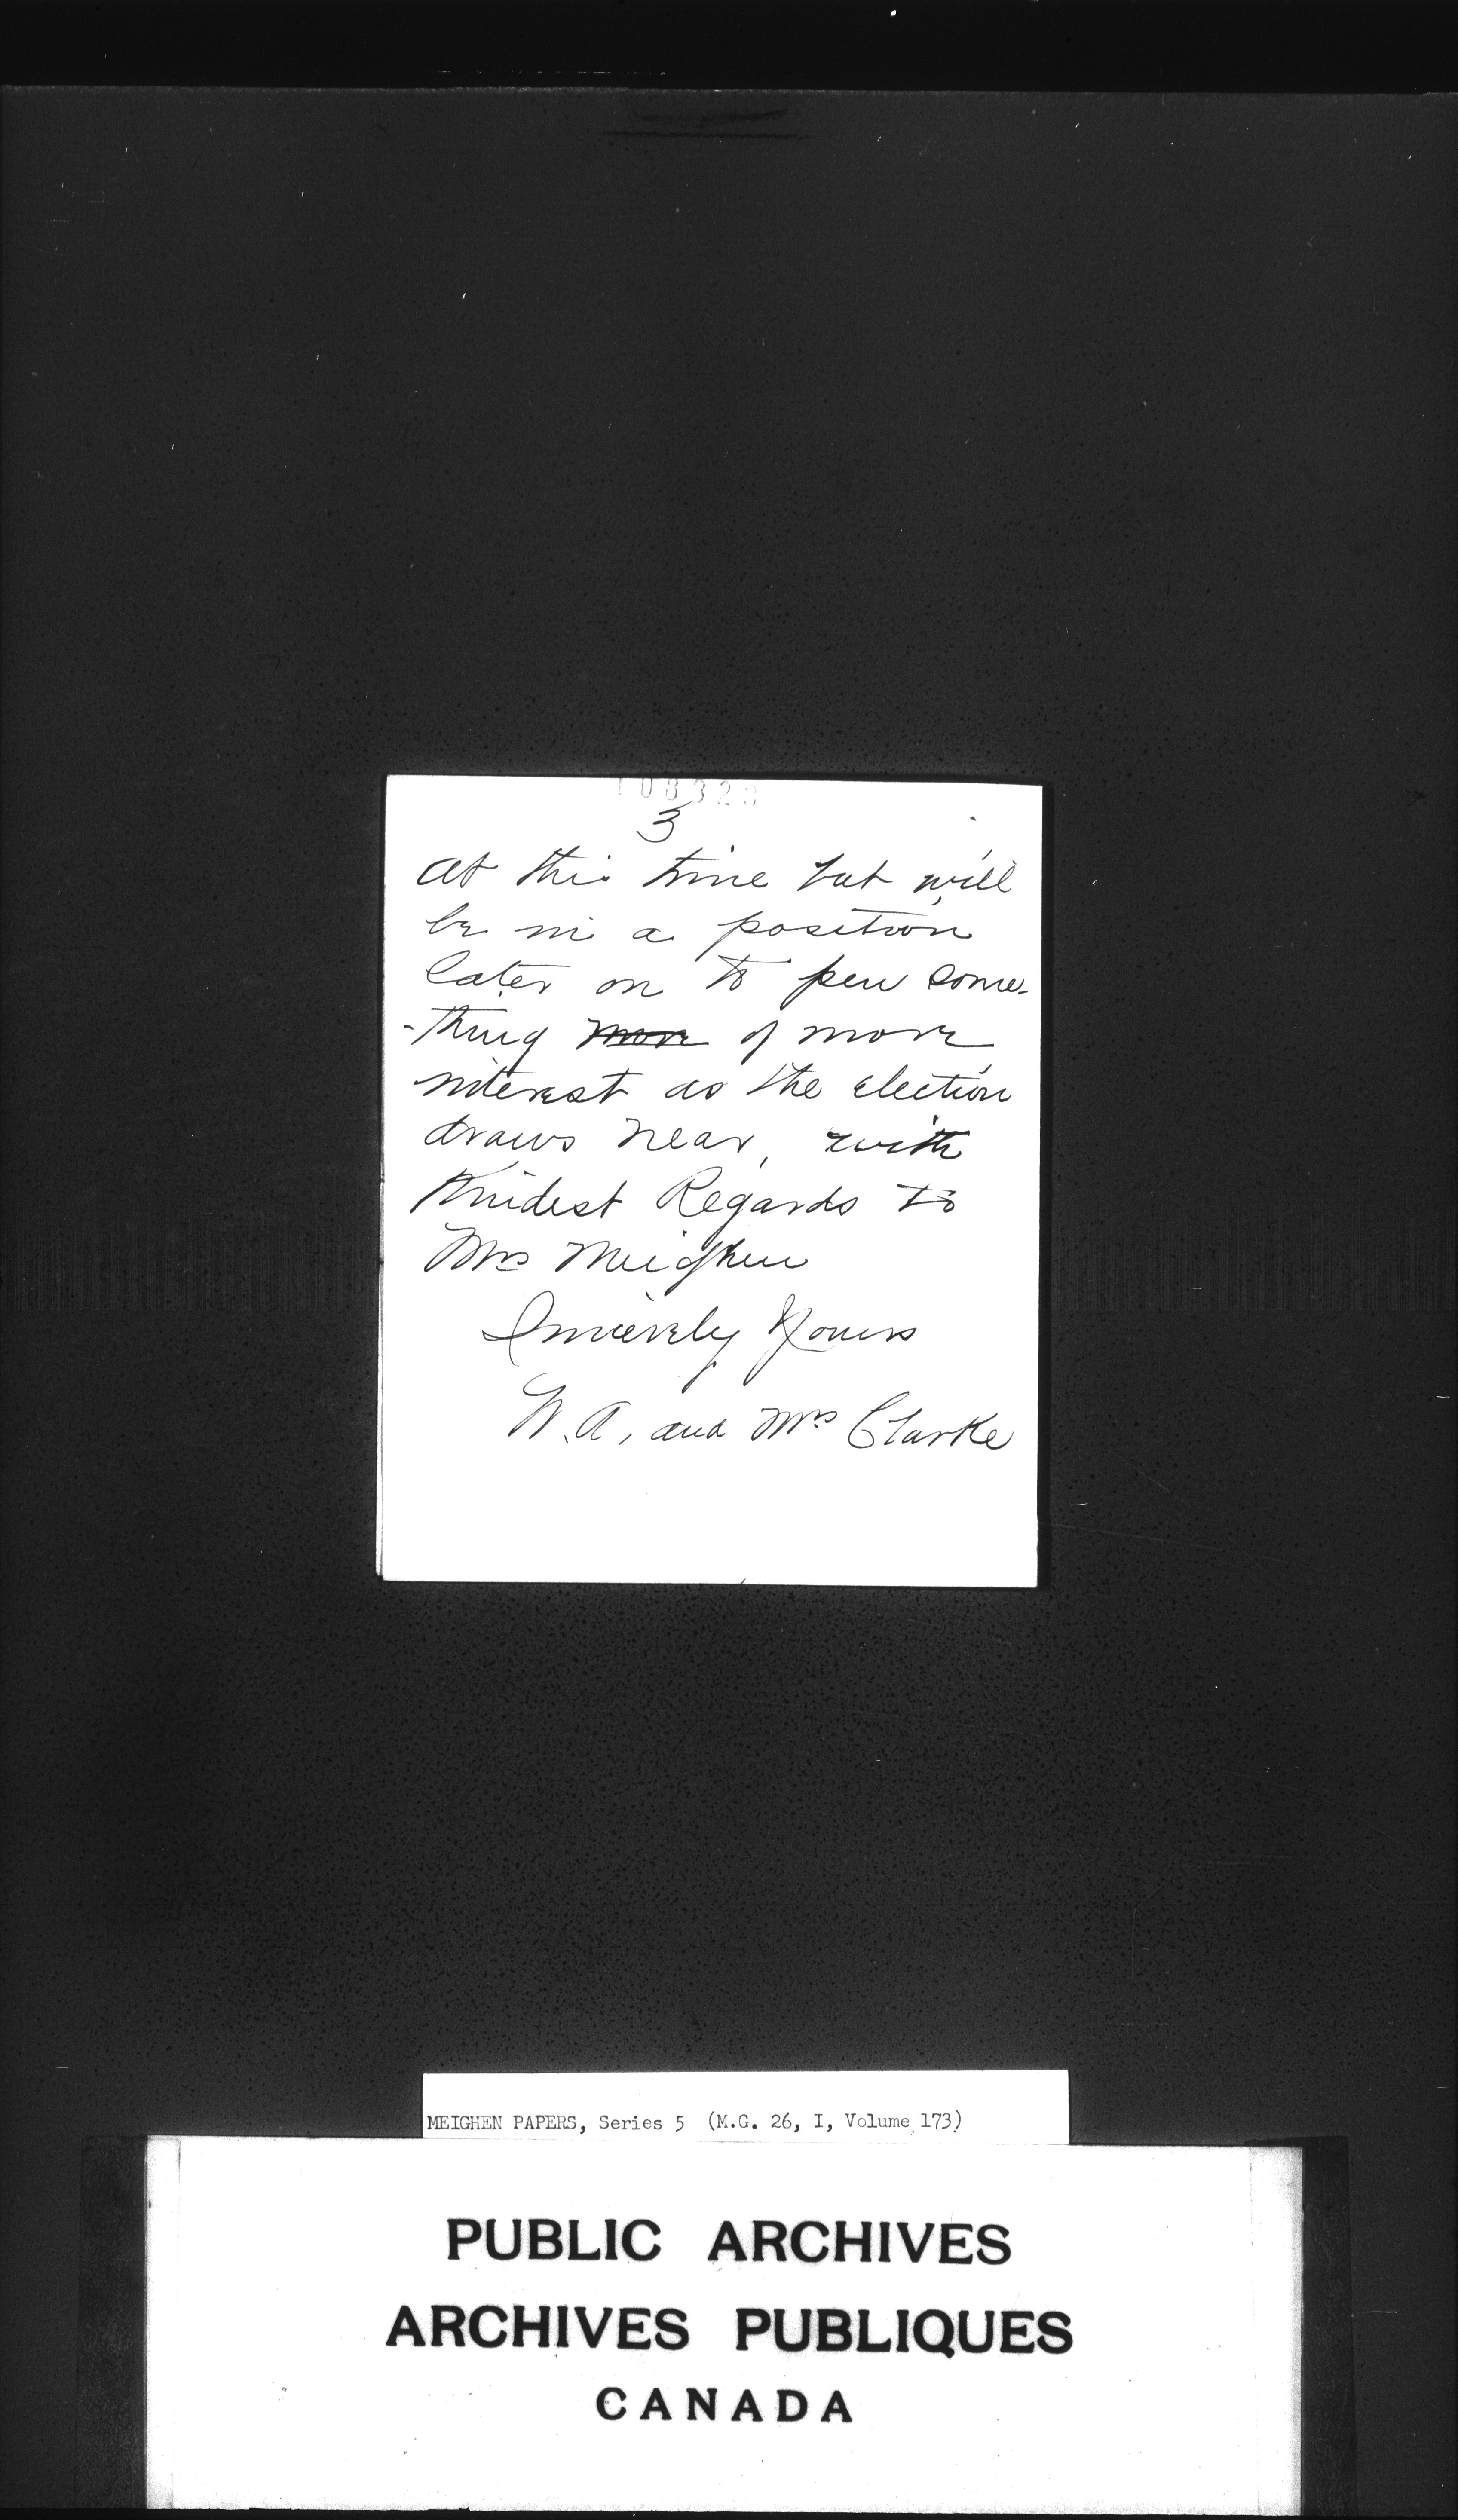 108328
3
at this time but will
be in a position
later on to pen some-
-thing more of more
interest as the election
draws near, with
Kindest Regards to
Mrs Meighen
Sincerely Yours
W.A, and Mrs Clarke
MEIGHEN PAPERS, Series 5 (M.G. 26, I, Volume 173)
PUBLIC ARCHIVES
ARCHIVES PUBLIQUES
CANADA